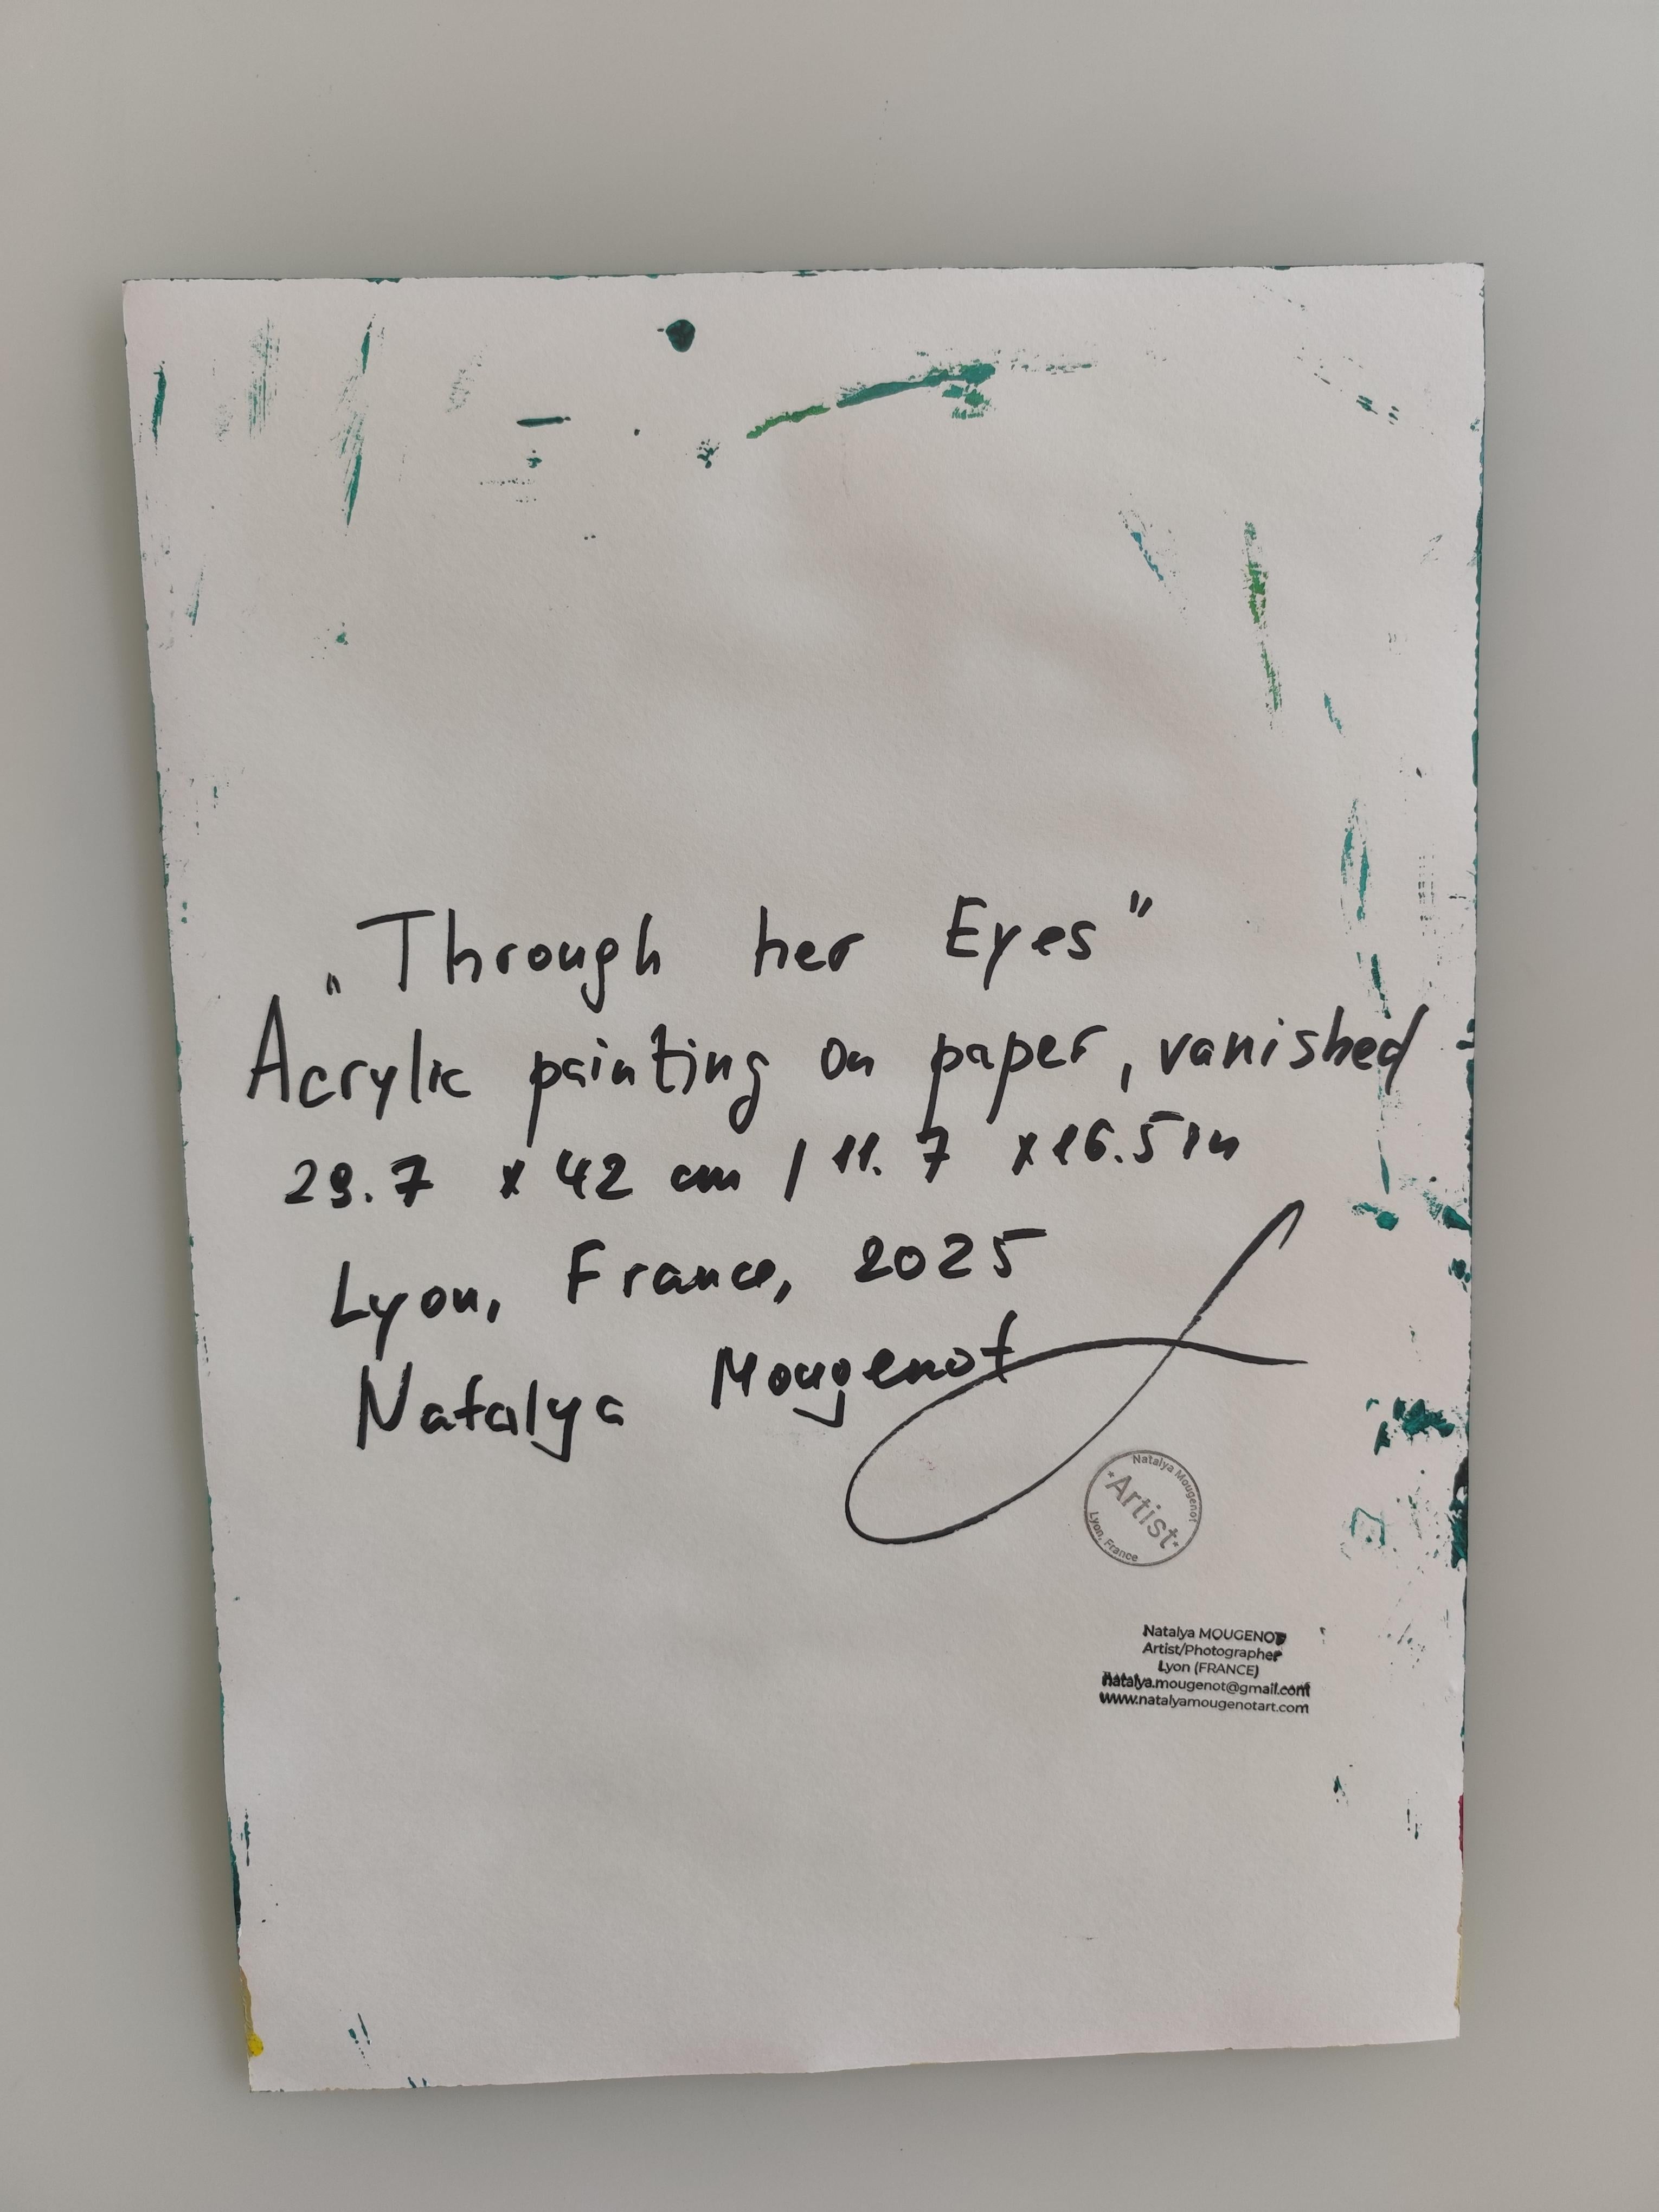 „Through her Eyes”
Acrylic painting on paper, vanished
29.7 x 42 cm / 11.7 x 16.5 in
Lyon, France, 2025
Natalya Mougenot
Natalya Mougenot
*Artist*
Lyon, France
Natalya MOUGENOT
Artist/Photographer
Lyon (FRANCE)
natalya.mougenot@gmail.com
www.natalyamougenotart.com